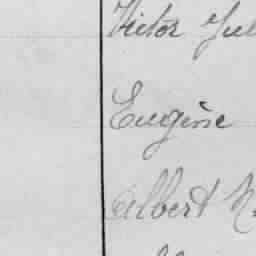 Victor Jul
Eugène
Albert